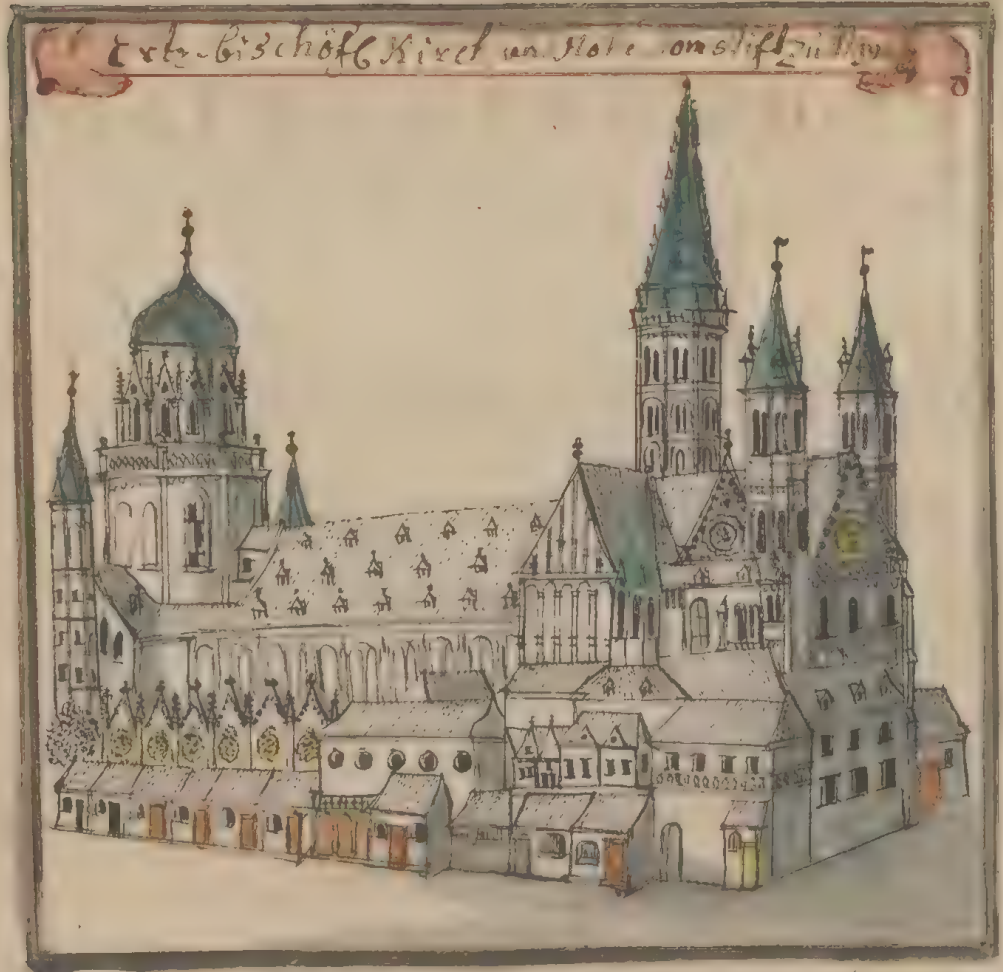 Ertz-bischöfl Kirch un Hohe omstift zu